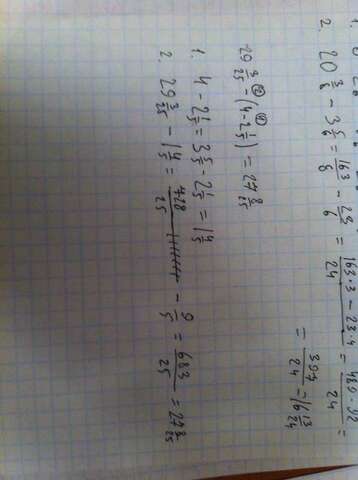 2. 20 3/8 - 3 5/6 = 163/8 - 23/6 = (163·3 - 23·4)/24 = (489 - 92)/24 =
= 397/24 = 16 13/24
29 3/25 - (4 - 2 1/5) = 27 8/25
1. 4 - 2 1/5 = 3 5/5 - 2 1/5 = 1 4/5
2. 29 3/25 - 1 4/5 = 728/25 - 9/5 = 683/25 = 27 8/25